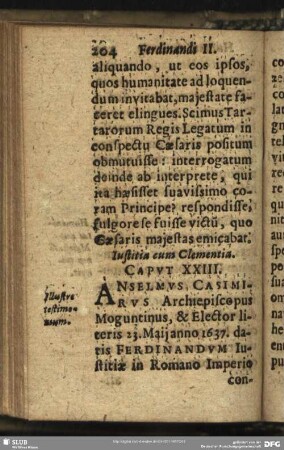 204 Ferdinandi II.
aliquando, ut eos ipsos,
quos humanitate ad loquen-
dum invitabat, majestate fa-
ceret elingues. Scimus Tar-
tarorum Regis Legatum in
conspectu Cæsaris positum
obmutuisse: interrogatum
deinde ab interprete, qui
ita hæsisset suavissimo co-
ram Principe? respondisse,
fulgore se fuisse victũ, quo
Cæsaris majestas emicabat.
Iustitia cum Clementia.
CAPVT XXIII.
ANSELMVS CASIMI-
RVS Archiepiscopus
Moguntinus, & Elector li-
teris 23. Maij anno 1637. da-
tis FERDINANDVM Iu-
stitiæ in Romano Imperio
con-
Illustre
testimo-
nium.
SLUB
Wir führen Wissen.
DFG